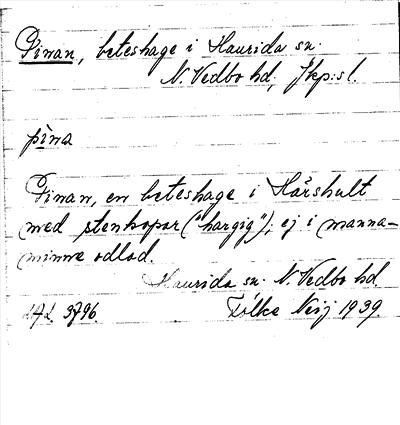 Pinan, beteshage i Haurida sn.
N. Vedbo hd, Jkp:s l.
pina
Pinan, en beteshage i Hårshult
med stenkopar ("hargig"); ej i manna-
minne odlad.
Haurida sn. N. Vedbo hd.
3796. Folke Neij 1939.